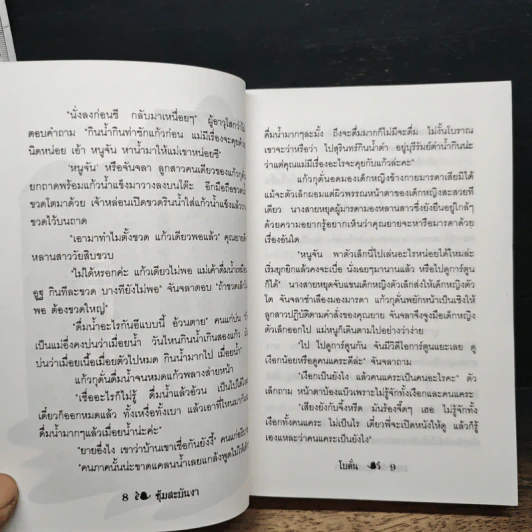 "นั่งลงก่อนซี กลับมาเหนื่อยๆ" ผู้อาวุโสกว่าไม่
ตอบคำถาม "กินน้ำกินท่าซักแก้วก่อน แม่มีเรื่องจะคุยด้วย
นิดหน่อย เอ้า หนูจัน หาน้ำมาให้แม่เขาหน่อยซี"
"หนูจัน" หรือจันจลา ลูกสาวคนเดียวของแก้วกุดั่น
ยกถาดพร้อมแก้วน้ำแข็งมาวางลงบนโต๊ะ อีกมือถือขวดน้ำ
ขวดโตมาด้วย เจ้าหล่อนเปิดขวดรินน้ำใส่แก้วน้ำแข็งแล้ววาง
ขวดไว้บนถาด
"เอามาทำไมตั้งขวด แก้วเดียวพอแล้ว" คุณยายดุ
หลานสาววัยสิบขวบ
"ไม่ได้หรอกค่ะ แก้วเดียวไม่พอ แม่เค้าดื่มน้ำเหมือน
อูฐ กินทีละขวด บางทียังไม่พอ" จันจลาตอบ "ถ้าขวดเล็กไม่
พอ ต้องขวดใหญ่"
"ดื่มน้ำอะไรกันอีแบบนี้ อ้วนตาย" คนแก่บ่น
เป็นแม่อึ่งคงบ่นว่าเมื่อยน้ำ วันไหนกินน้ำเกินสองแก้ว
บ่นว่าเมื่อยเนื้อเมื่อยตัวไปหมด กินน้ำมากไป เมื่อยน้ำ"
แก้วกุดั่นดื่มน้ำจนหมดแก้วพลางส่ายหน้า
"เชื่ออะไรก็ไม่รู้ ดื่มน้ำแล้วอ้วน เป็นไปได้
เดี๋ยวก็ออกหมดแล้ว ทั้งเหงื่อทั้งเบา แล้วเอาที่ไหนมา
ดื่มน้ำมากๆแล้วเมื่อยน้ำน่ะค่ะ"
"ยายอึ่งไง เขาว่าบ้านเขาเชื่อกันยังงี้"
"คนภาคนั้นน่ะขาดแคลนน้ำเลยแกล้งพูดไม่ให้
8 ซุ้มสะบันงา
ดื่มน้ำมากๆละมั้ง ถึงจะดื่มมากก็ไม่มีจะดื่ม ไม่งั้นโบราณ
เขาจะว่าหรือว่า ไปสุรินทร์กินน้ำเต่า อยู่บุรีรัมย์ตำน้ำกินน่ะ
ว่าแต่คุณแม่มีเรื่องอะไรจะคุยกับแก้วล่ะคะ"
แก้วกุดั่นอดมองเด็กหญิงข้างกายมารดาเสียมิได้
แม้จะตัวเล็กผอมแต่มีผิวพรรณหน้าตาของเด็กหญิงสะสวยที
เดียว นางสายหยุดผู้มารดามองหลานสาวซึ่งยังยืนอยู่ใกล้ๆ
ด้วยความอยากรู้อยากเห็นว่าคุณยายจะหารือมารดาด้วย
เรื่องอันใด
"หนูจัน พาตัวเล็กนี่ไปเล่นอะไรหน่อยได้ไหมล่ะ
เริ่มยุกยิกแล้วคงจะเบื่อ นั่งเฉยๆมานานแล้ว หรือไปดูการ์ตูน
ก็ได้" นางสายหยุดจับแขนเด็กหญิงตัวเล็กส่งให้เด็กหญิงตัว
โต จันจลาชำเลืองมองมารดา แก้วกุดั่นพยักหน้าเป็นเชิงให้
ลูกสาวปฏิบัติตามคำสั่งของคุณยาย จันจลาจึงจูงมือเด็กหญิง
ตัวเล็กออกไป แม่หนูก็เดินตามไปอย่างว่าง่าย
"ไป ไปดูการ์ตูนกัน จันมีวิดีโอการ์ตูนแยะเลย ดู
เงือกน้อยหรือดูคนแคระดีล่ะ" จันจลาถาม
"เงือกเป็นยังไง แล้วคนแคระเป็นคนอะไรคะ" ตัว
เล็กถาม หน้าตาบ้องแบ๊วเพราะไม่รู้จักทั้งเงือกและคนแคระ
"เสียงยังกับจิ้งหรีด มันร้องจี๊ดๆ เธอ ไม่รู้จักทั้ง
เงือกทั้งคนแคระ ไม่เป็นไร เดี๋ยวพี่จะเปิดหนังให้ดู แล้วก็รู้
เองแหละว่าคนแคระเป็นยังไง"
โบตั๋น 9